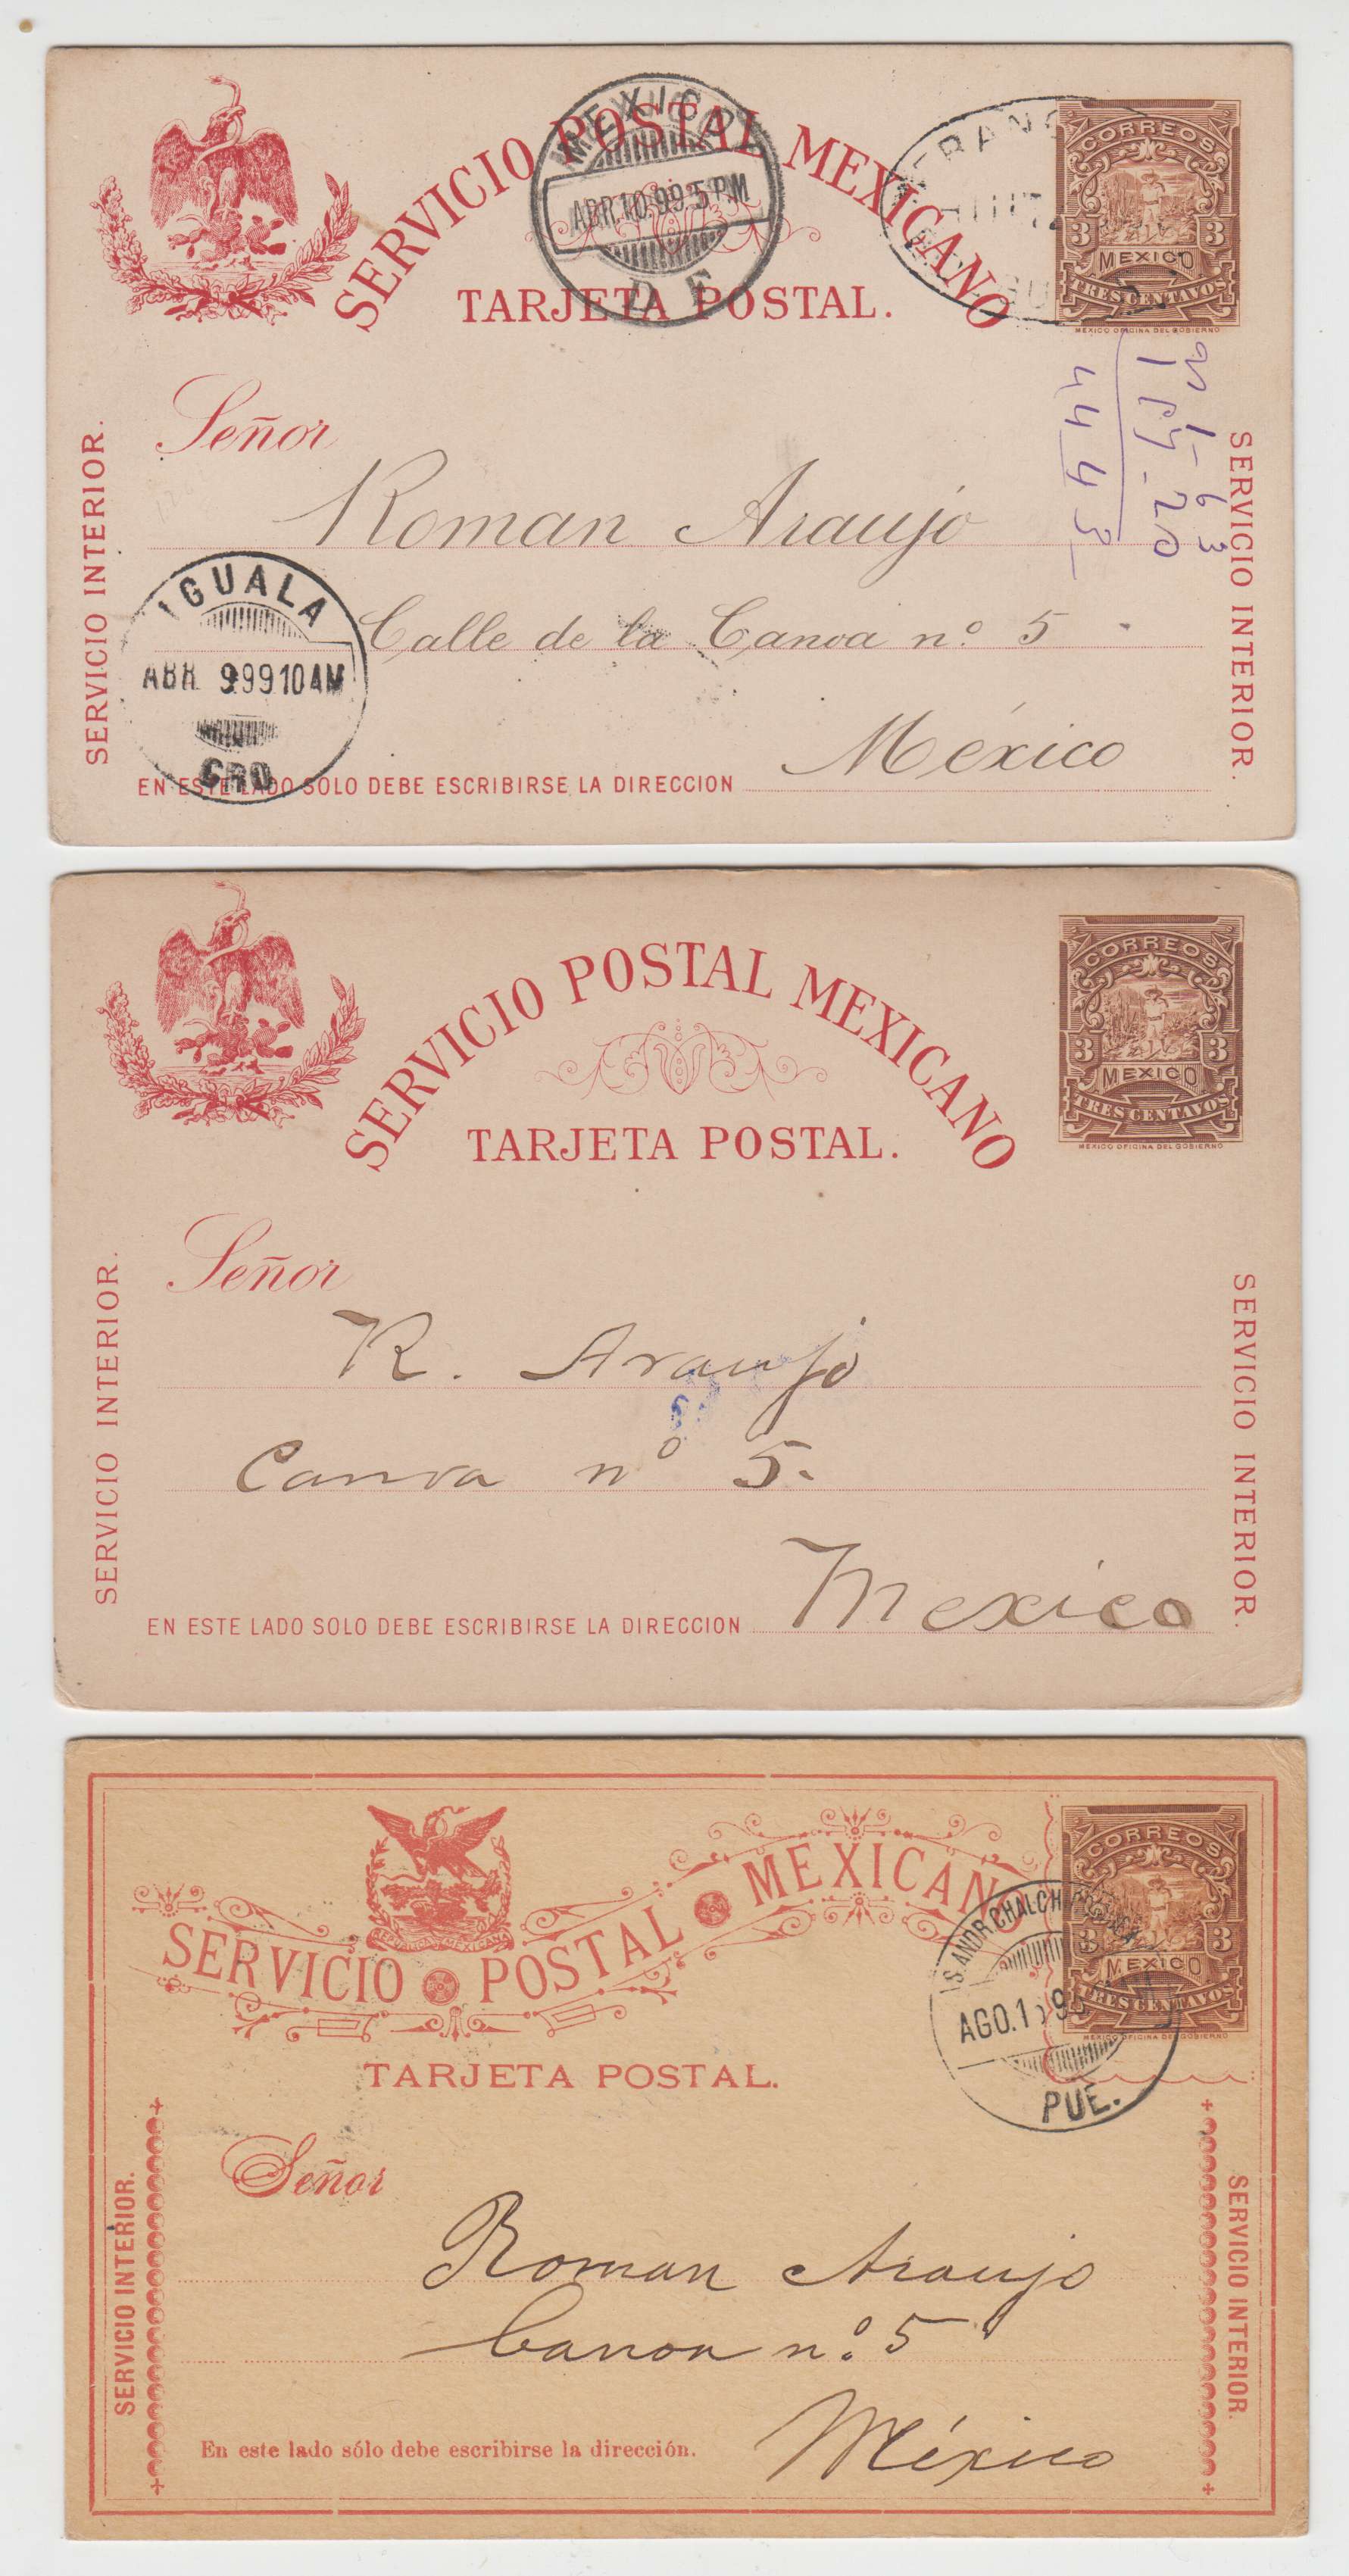 SERVICIO POSTAL MEXICANO
TARJETA POSTAL.
MEXICO
ABR.10.99.5 PM
D F
CORREOS
3 3
MEXICO
TRES CENTAVOS
MEXICO OFICINA DEL GOBIERNO
Señor
Roman Araujo
Calle de la Canoa nº 5
México
SERVICIO INTERIOR.
SERVICIO INTERIOR.
IGUALA
ABR. 9.99 10 AM
GRO
EN ESTE LADO SOLO DEBE ESCRIBIRSE LA DIRECCION
4443
SERVICIO POSTAL MEXICANO
TARJETA POSTAL.
CORREOS
3 3
MEXICO
TRES CENTAVOS
MEXICO OFICINA DEL GOBIERNO
Señor
R. Araujo
Canoa nº 5.
Mexico
SERVICIO INTERIOR.
SERVICIO INTERIOR.
EN ESTE LADO SOLO DEBE ESCRIBIRSE LA DIRECCION
REPUBLICA MEXICANA
SERVICIO POSTAL MEXICANO
TARJETA POSTAL.
CORREOS
3 3
MEXICO
TRES CENTAVOS
MEXICO OFICINA DEL GOBIERNO
S. ANDR. CHALCH
AGO.1
PUE.
Señor
Roman Araujo
Canoa nº 5
México
SERVICIO INTERIOR.
SERVICIO INTERIOR.
En este lado sólo debe escribirse la dirección.